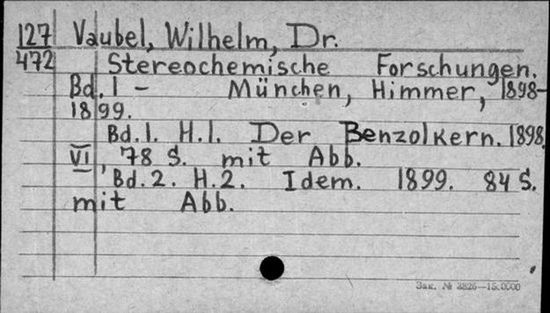 127 Vaubel, Wilhelm, Dr.
472 Stereochemische Forschungen.
Bd. 1 - München, Himmer, 1898-
1899.
Bd. 1. H. 1. Der Benzolkern. 1898
VI, 78 S. mit Abb.
Bd. 2. H. 2. Idem. 1899. 84 S.
mit Abb.
Зак. № 3826—15.0000